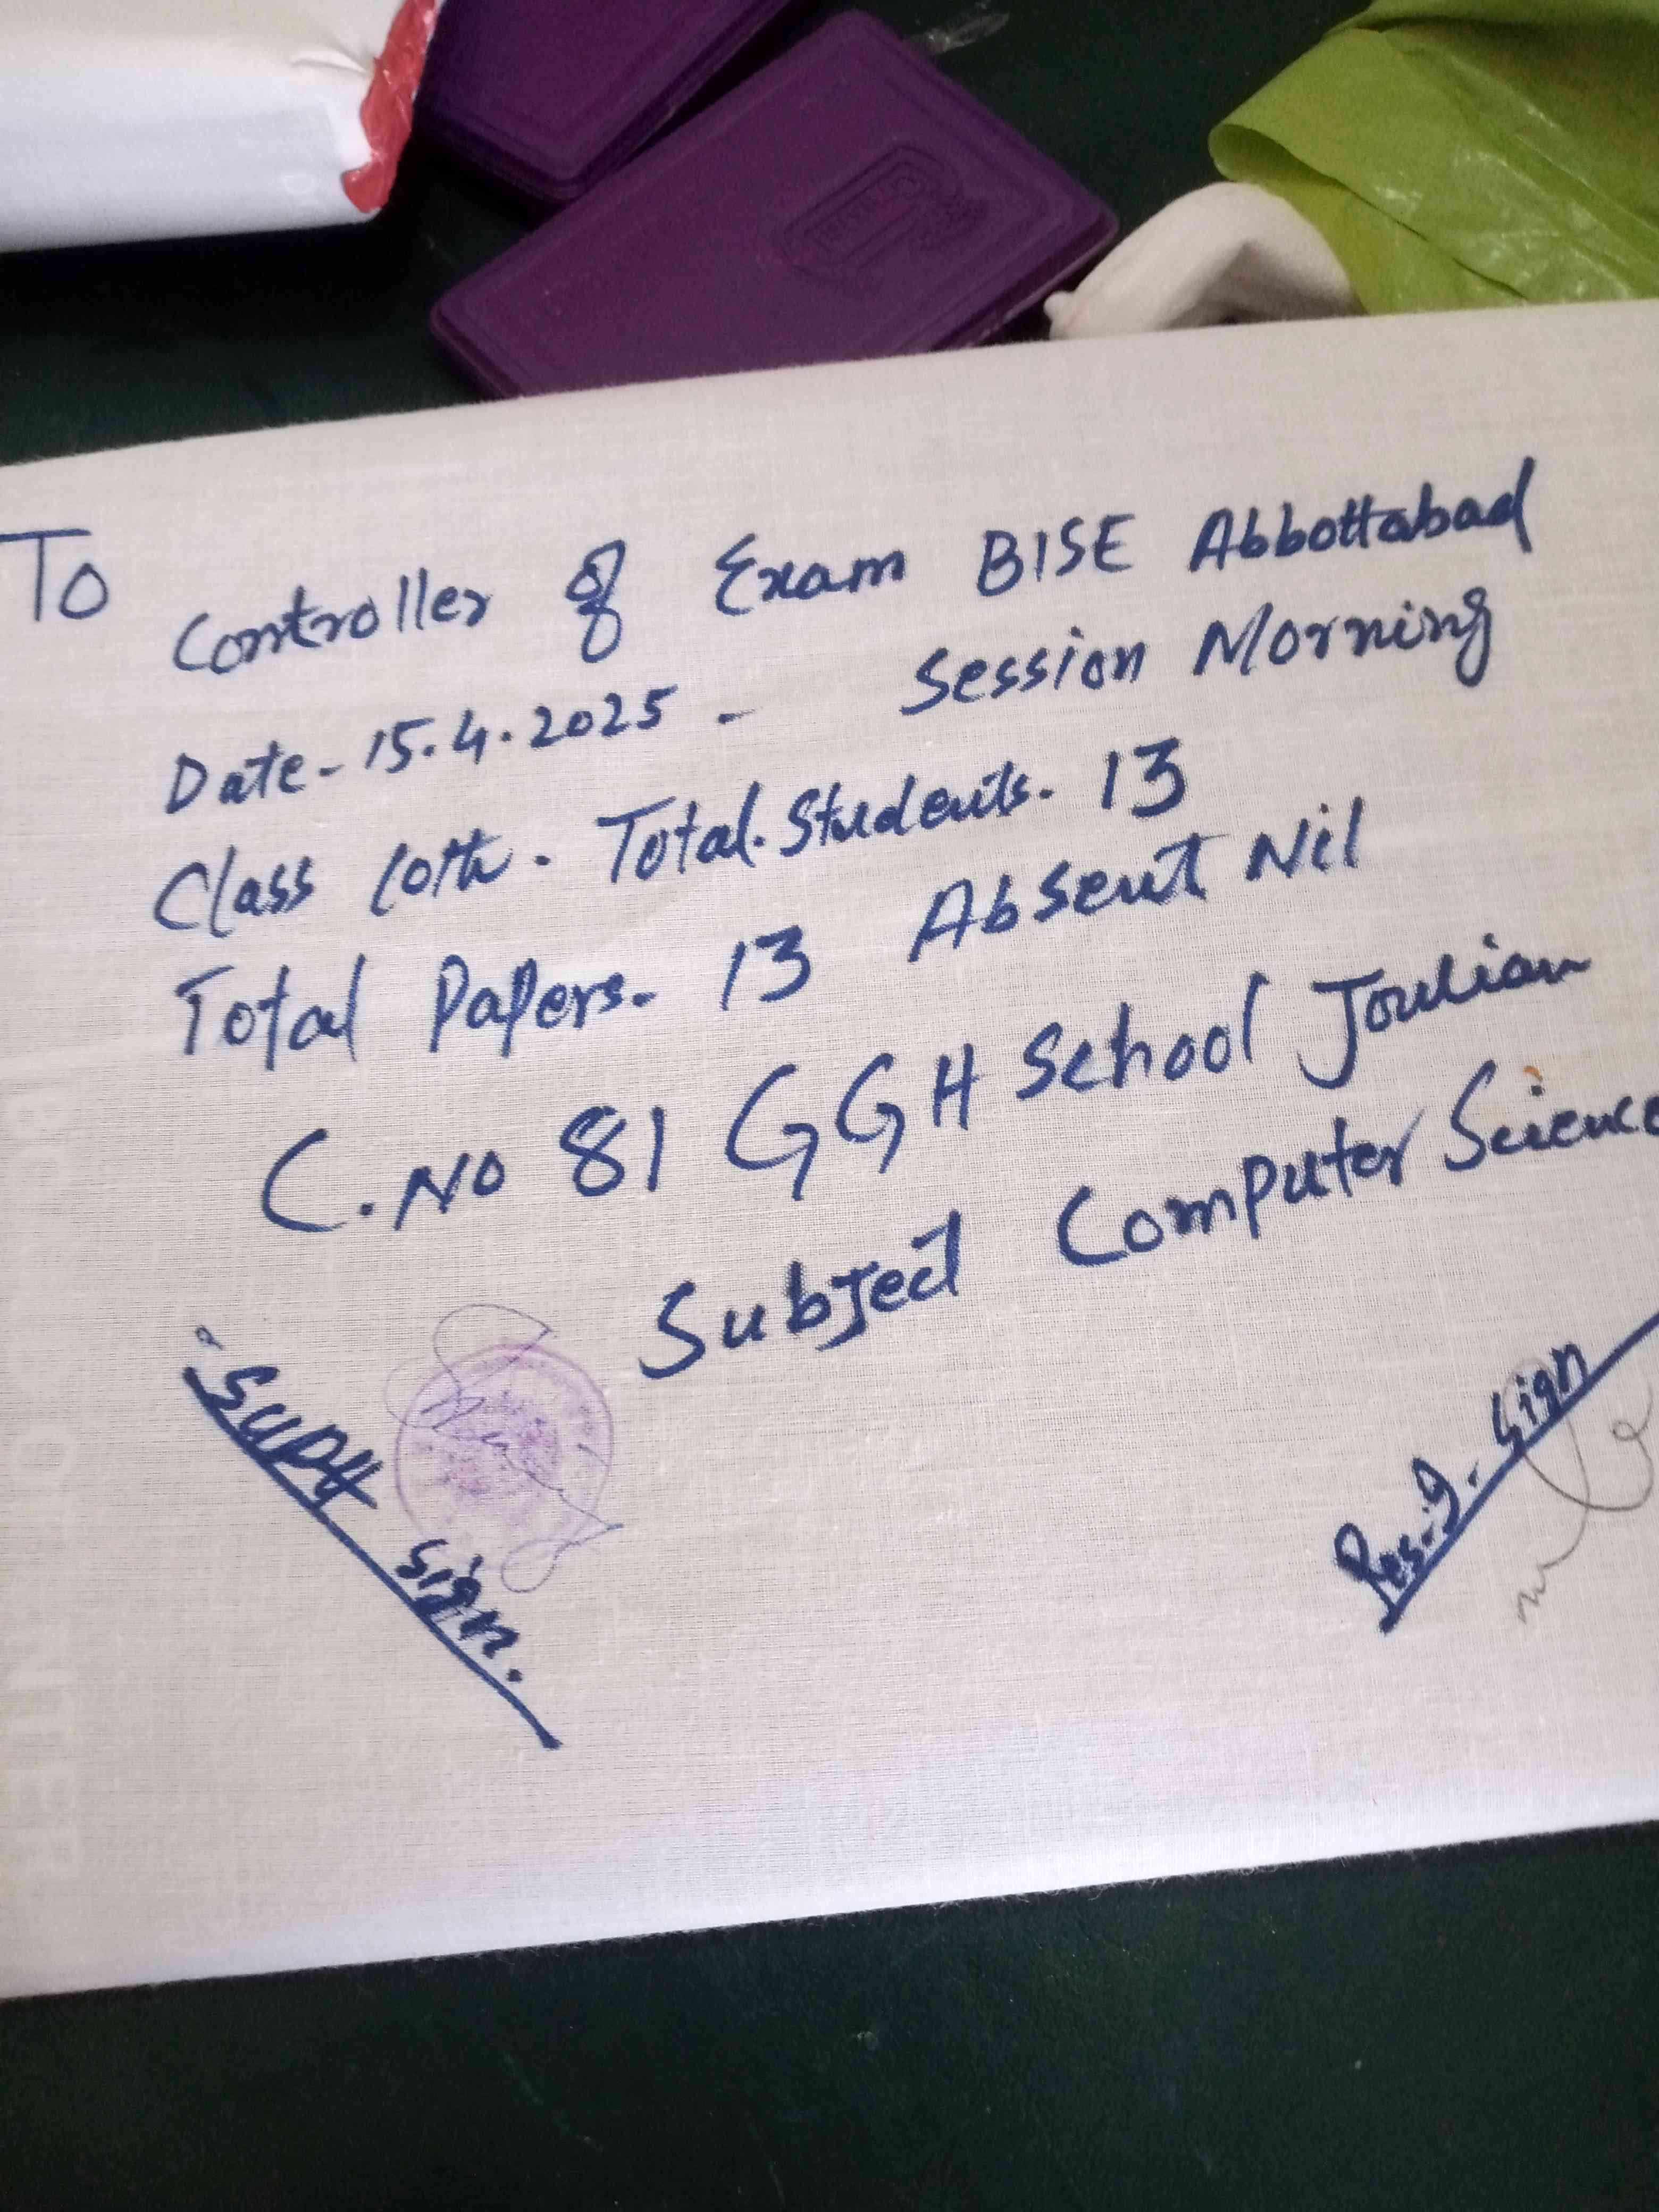 To
Controller of Exam BISE Abbottabad
Date - 15.4.2025 - Session Morning
Class 10th. Total. Students. 13
Total Papers. 13 Absent Nil
C.No 81 GGH School Joulian
Subject Computer Science
Supdt Sign.
Res.I. Sign